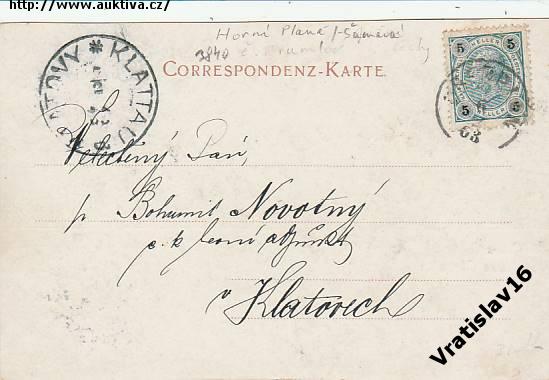 http://www.auktiva.cz/
Horní Planá /-Šumava
3840
CORRESPONDENZ-KARTE.
KLATTAU
KLATOVY
5 HELLER 5
5 5
03
Veletěný Pán,
p Bohumil Novotný
c. k. lesní adjunkt
v Klatovech
Vratislav16